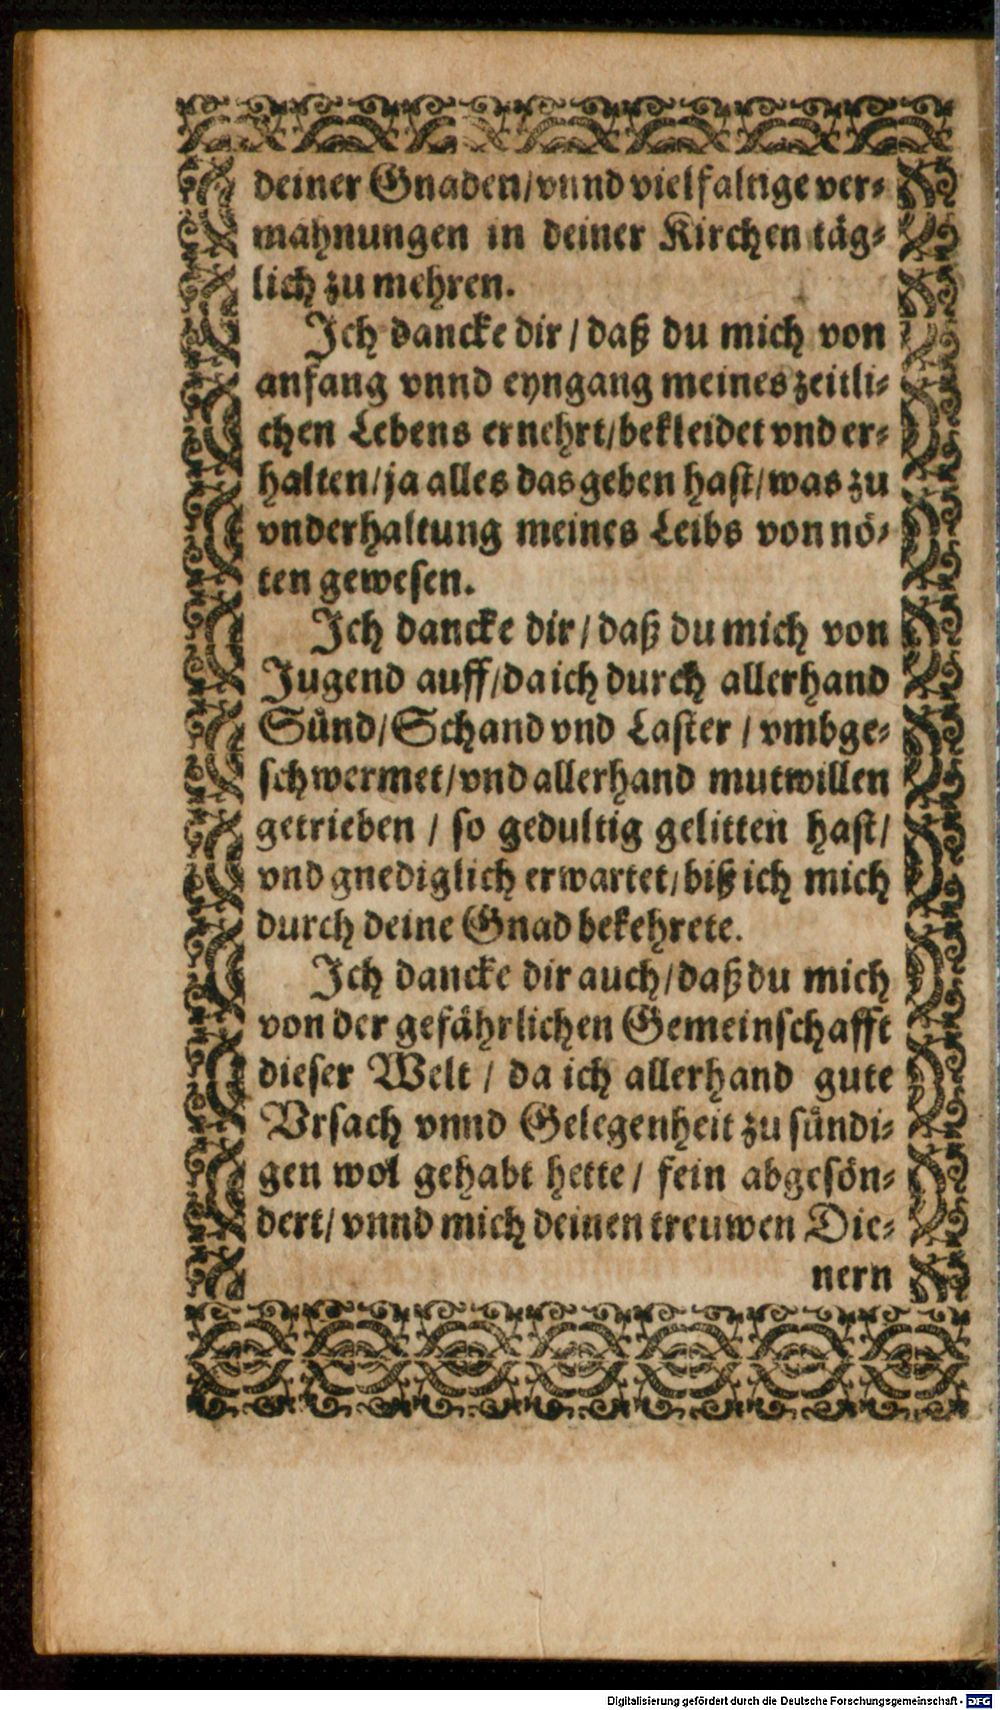 deiner Gnaden/vnnd vielfaltige ver⸗
mahnungen in deiner Kirchen täg⸗
lich zu mehren.
Ich dancke dir / daß du mich von
anfang vnnd eyngang meines zeitli⸗
chen Lebens ernehrt/bekleidet vnd er⸗
halten/ja alles das geben hast/was zu
vnderhaltung meines Leibs von nö⸗
ten gewesen.
Ich dancke dir / daß du mich von
Jugend auff/da ich durch allerhand
Sünd/Schand vnd Laster / vmbge⸗
schwermet/vnd allerhand mutwillen
getrieben / so gedultig gelitten hast/
vnd gnediglich erwartet/biß ich mich
durch deine Gnad bekehrete.
Ich dancke dir auch/daß du mich
von der gefährlichen Gemeinschafft
dieser Welt / da ich allerhand gute
Vrsach vnnd Gelegenheit zu sündi⸗
gen wol gehabt hette / fein abgesön⸗
dert/ vnnd mich deinen treuwen Die⸗
nern
Digitalisierung gefördert durch die Deutsche Forschungsgemeinschaft - DFG